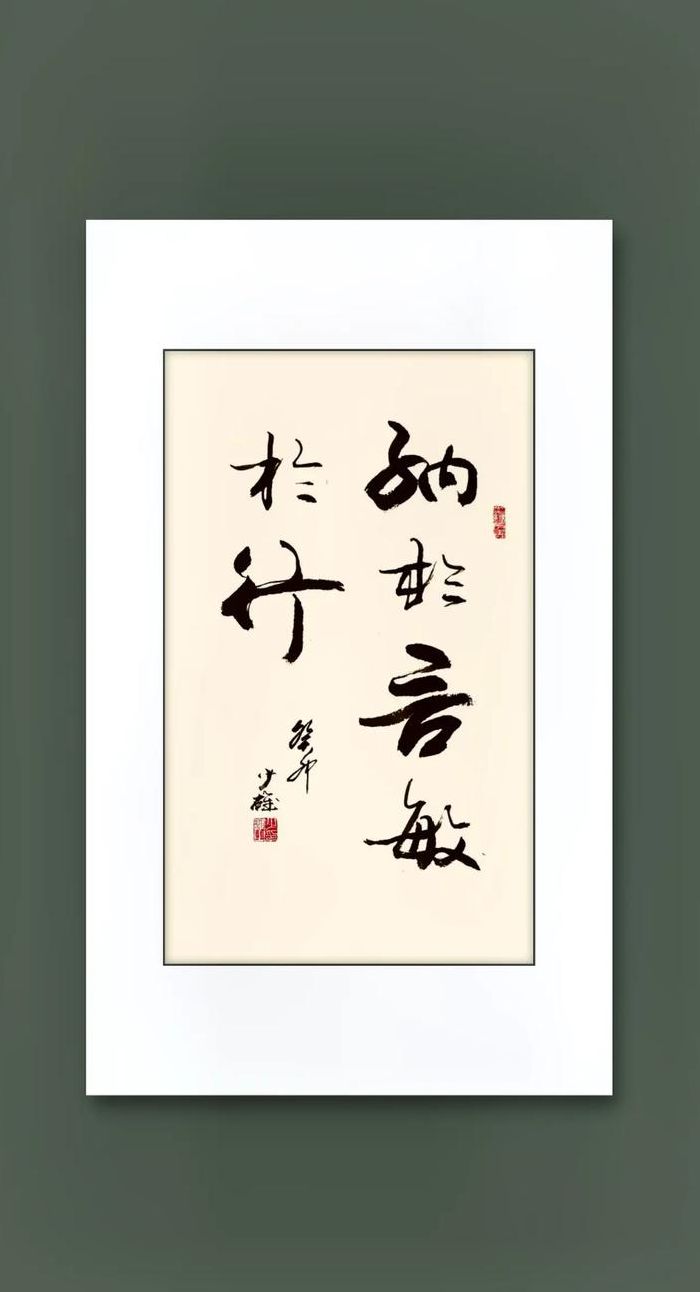 納於言敏
於行
癸卯
少